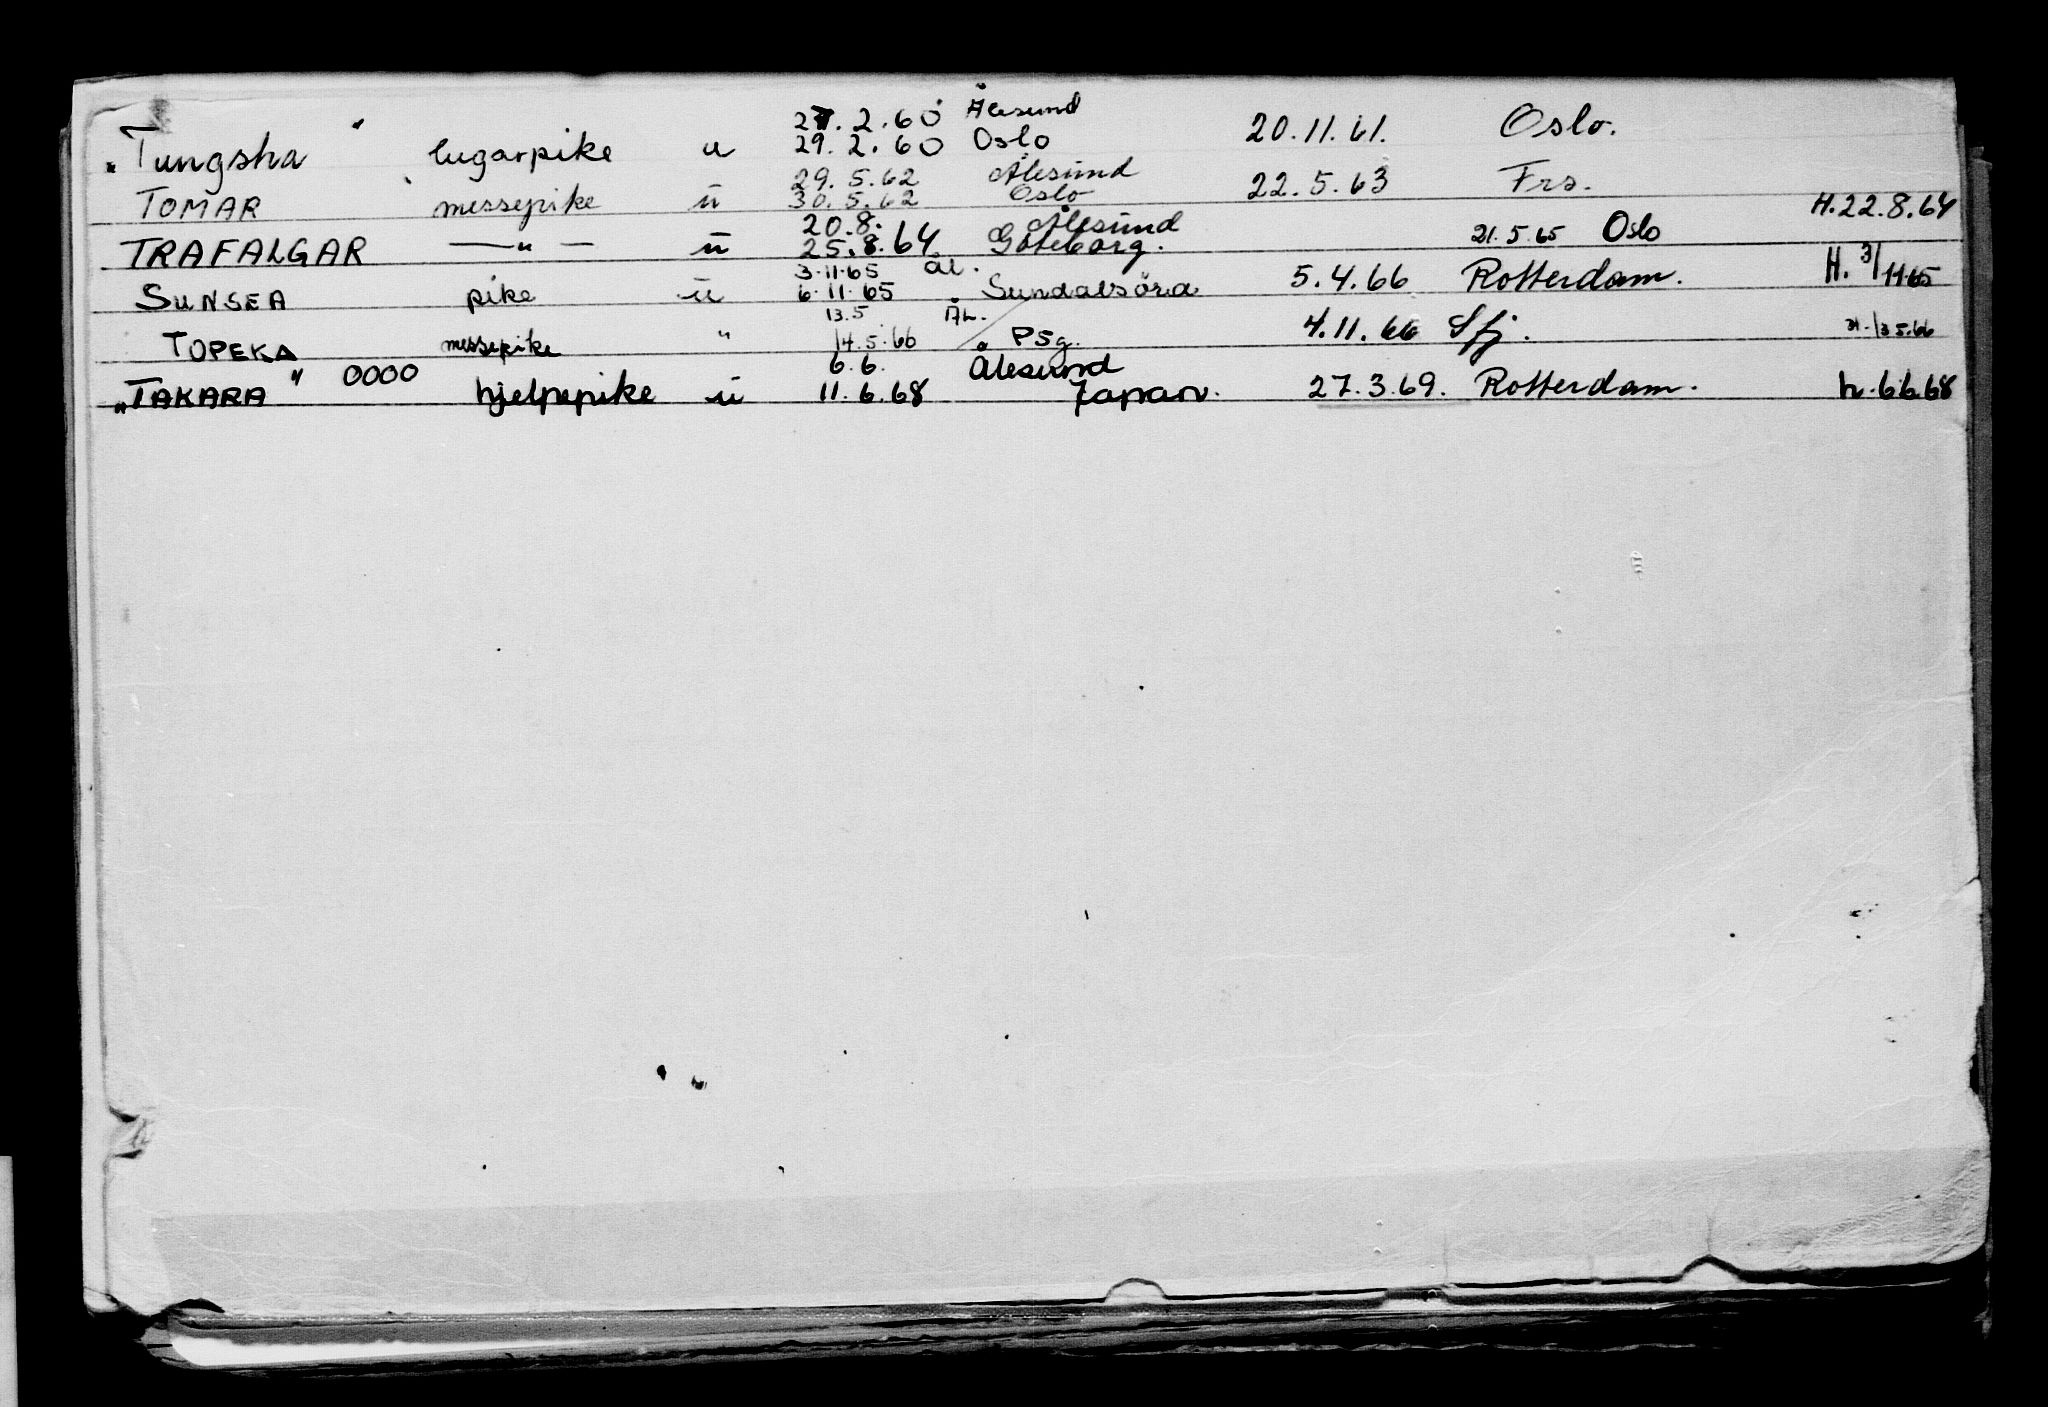 27.2.60 Ålesund
"Tungsha" lugarpike u 29.2.60 Oslo 20.11.61. Oslo.
29.5.62 Ålesund
TOMAR messepike u 30.5.62 Oslo 22.5.63 Frs.
20.8. Ålesund H.22.8.64
TRAFALGAR —"— u 25.8.64 Göteborg. 21.5.65 Oslo
3.11.65 Ål.
SUNSEA pike u 6.11.65 Sundalsöra 5.4.66 Rotterdam. H. 3/11-65
13.5 Ål.
TOPEKA messepike " 14.5.66 PSg. 4.11.66 Sfj.
6.6. Ålesund
"TAKARA" 0000 hjelpepike u 11.6.68 Japan. 27.3.69. Rotterdam. h.6.6.68